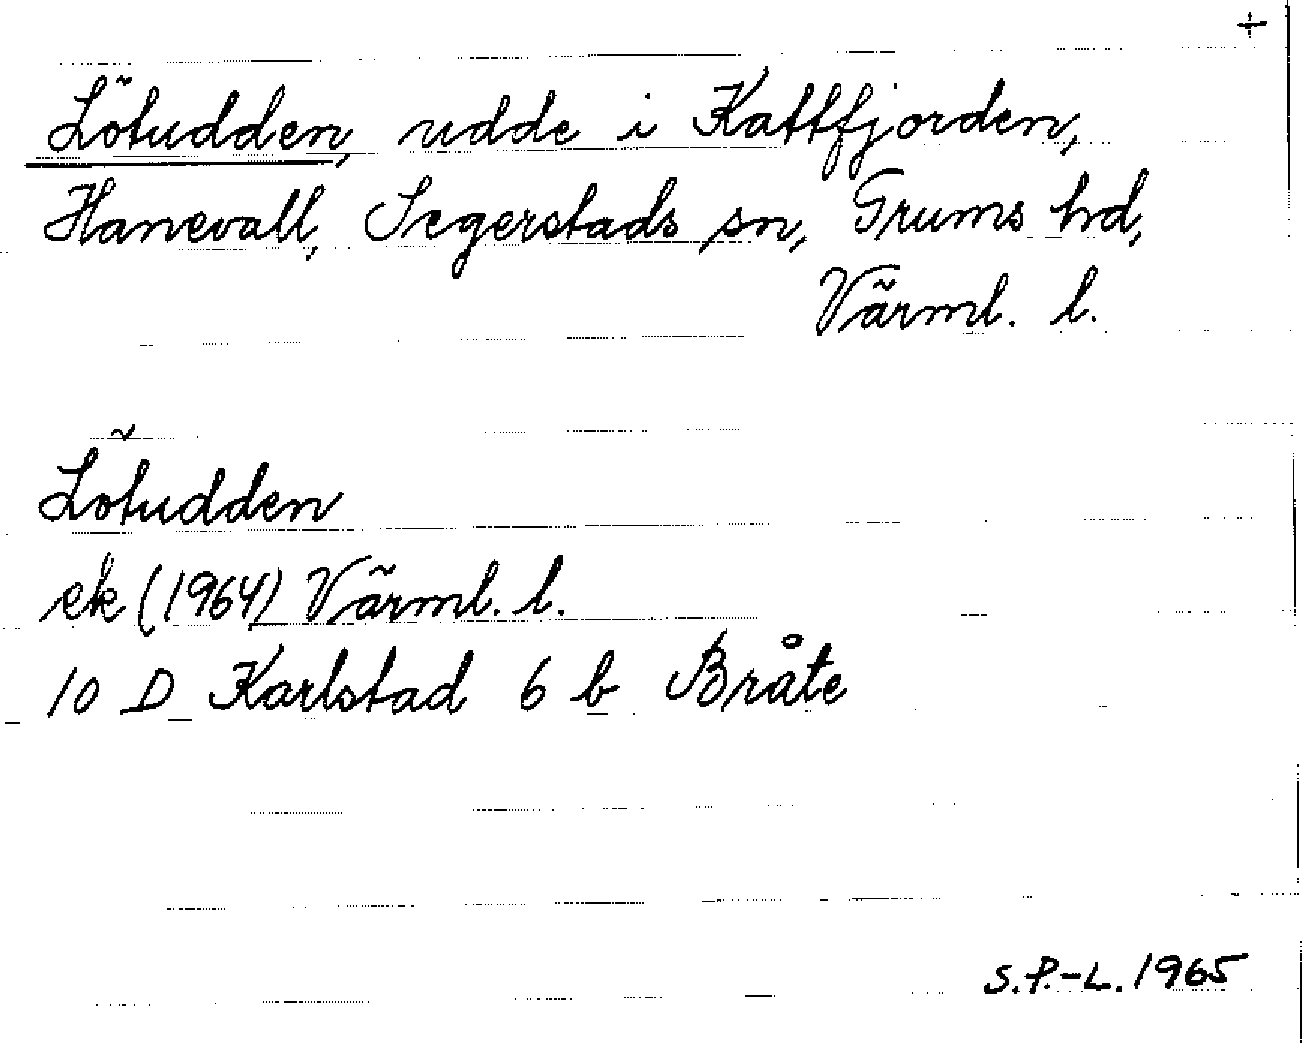 +
Lötudden, udde i Kattfjorden,
Hanevall, Segerstads sn, Grums hd,
Värml. l.
Lötudden
ek (1964) Värml. l.
10 D Karlstad 6 b Bråte
S.P.-L. 1965